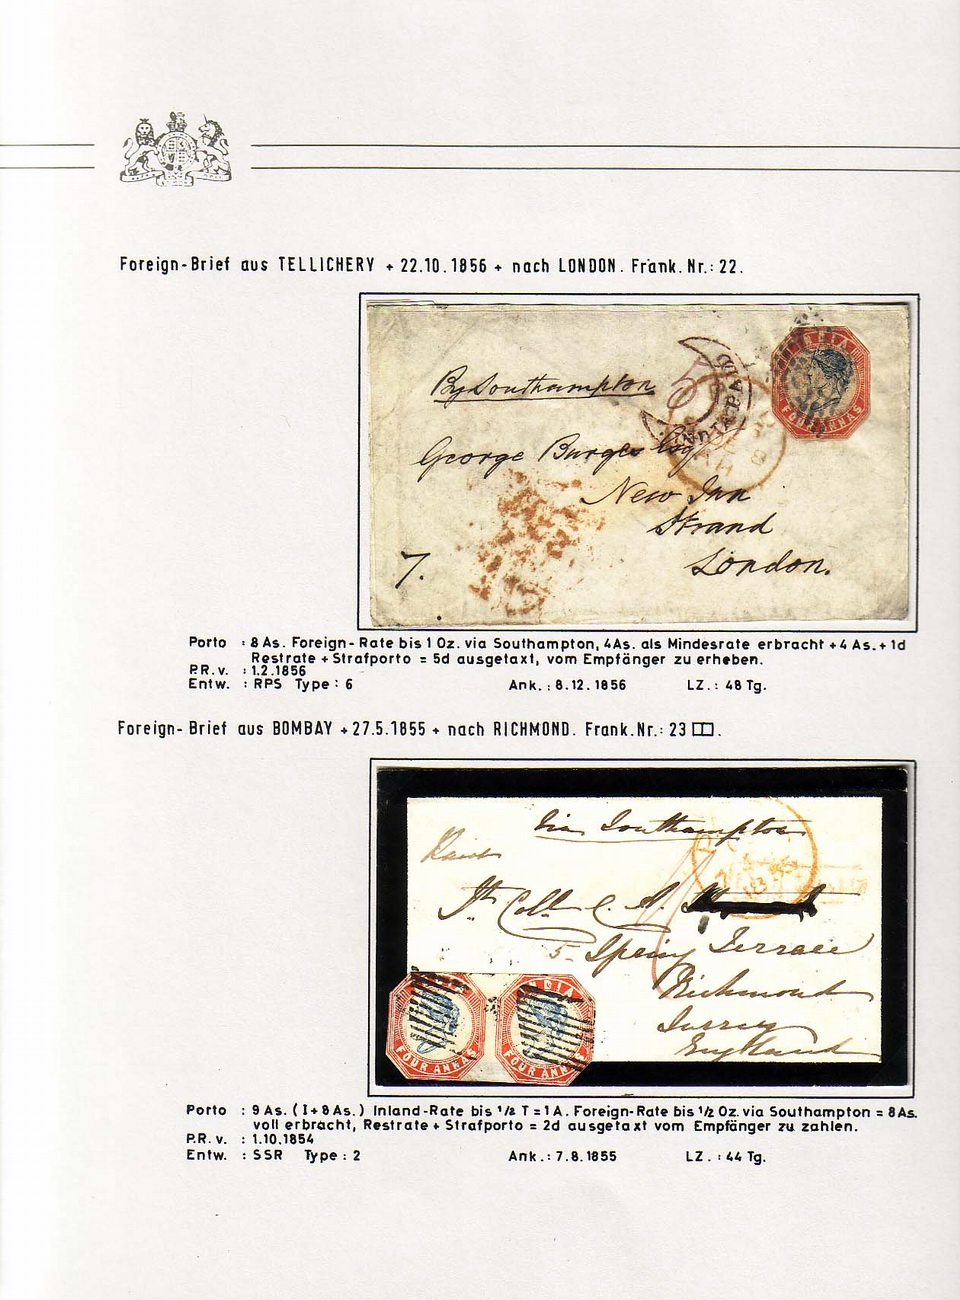 Foreign-Brief aus TELLICHERY + 22.10.1856 + nach LONDON. Frank. Nr.: 22.
By Southampton
5
INDIA PAID
INDIA
FOUR ANNAS
George Burges Esqr
New Inn
Strand
London.
7.
Porto : 8 As. Foreign-Rate bis 1 Oz. via Southampton, 4As. als Mindesrate erbracht + 4 As. + 1d
Restrate + Strafporto = 5d ausgetaxt, vom Empfänger zu erheben.
P.R. v. : 1.2.1856
Entw. : RPS Type : 6 Ank. : 8.12. 1856 LZ. : 48 Tg.
Foreign-Brief aus BOMBAY + 27.5.1855 + nach RICHMOND. Frank.Nr.: 23.
Via Southampton
1855
5 Spring Terrace
Richmond
Surrey
England
INDIA
FOUR ANNAS
FOUR ANNAS
Porto : 9 As. ( I + 8 As. ) Inland-Rate bis 1/2 T = 1 A. Foreign-Rate bis 1/2 Oz. via Southampton = 8 As.
voll erbracht, Restrate + Strafporto = 2d ausgetaxt vom Empfänger zu zahlen.
P.R. v. : 1.10.1854
Entw. : SSR Type : 2 Ank. : 7.8.1855 LZ. : 44 Tg.